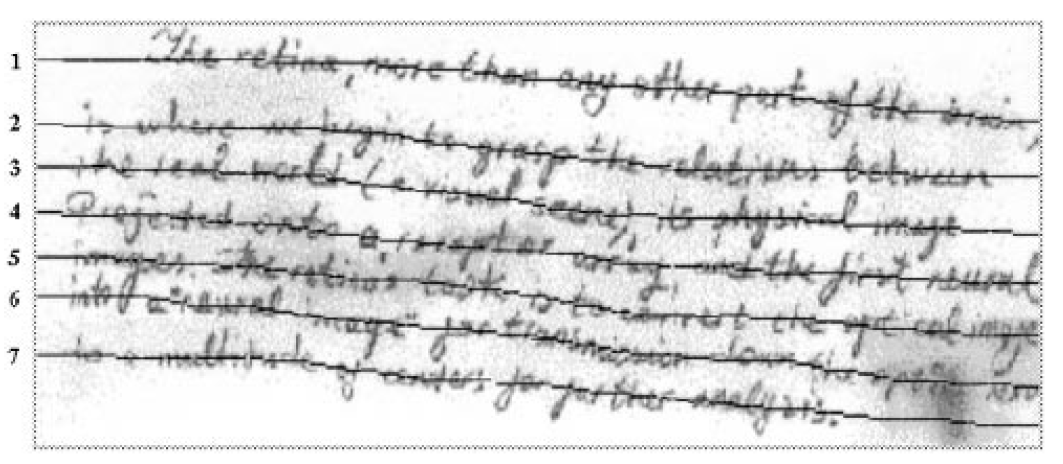 1 The retina, more than any other part of the brain,
2 is where we begin to grasp the relations between
3 the real world (a visual scene), its physical image
4 Projected onto a receptor array, and the first neural
5 images. The retina's task is to convert the optical image
6 into a "neural image" for transmission down the optic
7 to a multitude of centers for further analysis.